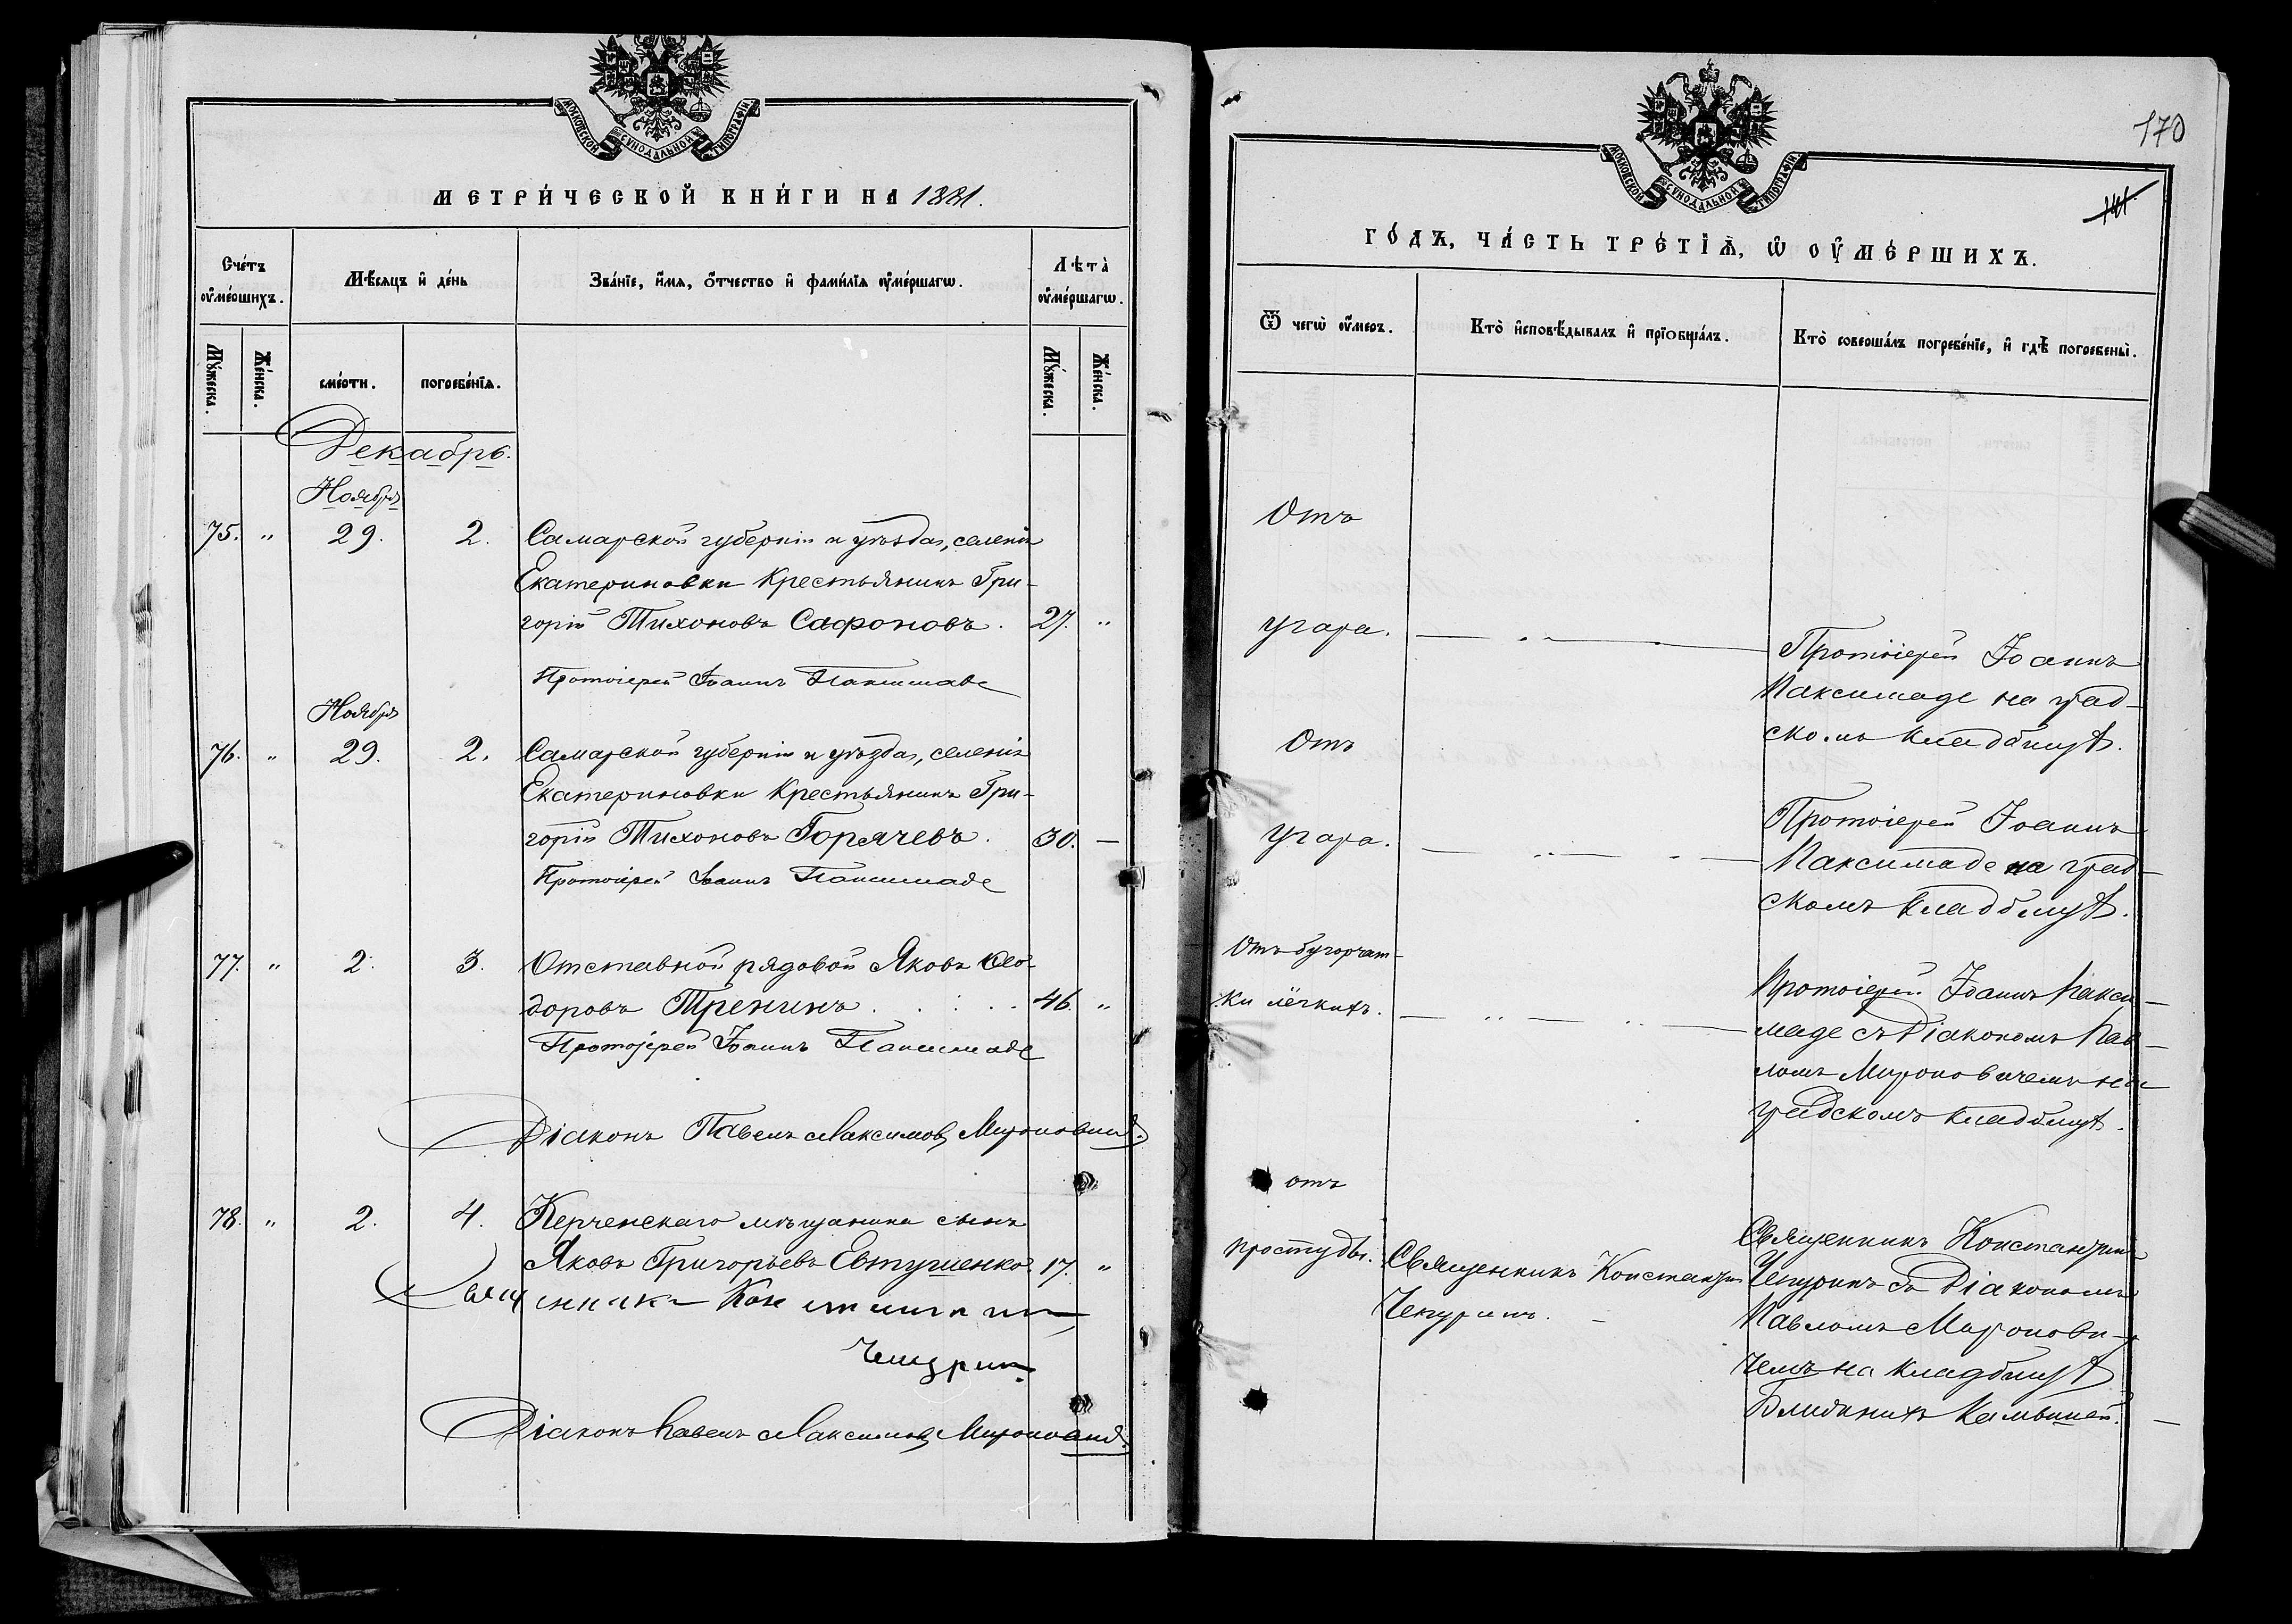 МОСКОВСКОЙ СѴНОДАЛЬНОЙ ТИПОГРАФІИ
МЕТРИ́ЧЕСКОЙ КНИ́ГИ НА 1881.
Сче́тъ ᲂу҆ме́ршихъ.
Мѣ́сяцъ и҆ де́нь
Зва́нїе, и҆́мѧ, ѻ҆́тчество и҆ фами́лїѧ ᲂу҆ме́ршагѡ.
Лѣта̀ ᲂу҆ме́ршагѡ.
Мꙋ́жеска.
Же́нска.
сме́рти.
погребе́нїѧ.
Мꙋ́жеска.
Же́нска.
Декабрь.
Ноябрь
75. " 29. 2. Самарской губерніи и уѣзда, селенія
Екатериновки Крестьянинъ Гри-
горій Тихоновъ Сафоновъ. 27. "
Протоіерей Іоаннъ Паксимаде
Ноябрь
76. " 29. 2. Самарской губерніи и уѣзда, селенія
Екатериновки Крестьянинъ Гри-
горій Тихоновъ Горячевъ. 30. —
Протоіерей Іоаннъ Паксимаде
77. " 2. 3. Отставной рядовой Яковъ Ѳео-
доровъ Тренинъ . . . . 46. "
Протоіерей Іоаннъ Паксимаде
Діаконъ Павелъ Максимовъ Мироновичъ.
78. " 2. 4. Керченскаго мѣщанина сынъ
Яковъ Григорьевъ Евтушенко. 17. "
Священникъ Константинъ
Чепуринъ
Діаконъ Павелъ Максимовъ Мироновичъ.
МОСКОВСКОЙ СѴНОДАЛЬНОЙ ТИПОГРАФІИ
170
ГО́ДЪ, ЧА́СТЬ ТРЕ́ТЇѦ, Ѡ҆ ОУ҆МЕ́РШИХЪ.
Ѿ чегѡ̀ ᲂу҆́меръ.
Кто̀ и҆сповѣ́дывалъ и҆ прїобща́лъ.
Кто̀ соверша́лъ погребе́нїе, и҆ гдѣ̀ погребены̀.
Отъ
угара. — " —
Протоіерей Іоаннъ
Паксимаде на град-
скомъ кладбищѣ.
Отъ
угара. — " —
Протоіерей Іоаннъ
Паксимаде на град-
скомъ кладбищѣ.
Отъ бугорчат-
ки лёгкихъ. — " — " —
Протоіерей Іоаннъ Пакси-
маде съ Діакономъ Пав-
ломъ Мироновичемъ на
градскомъ кладбищѣ.
отъ
простуды.
Священникъ Константинъ
Чепуринъ. —
Священникъ Константинъ
Чепуринъ съ Діакономъ
Павломъ Миронови-
чемъ на кладбищѣ
Ближнихъ Камышей. —